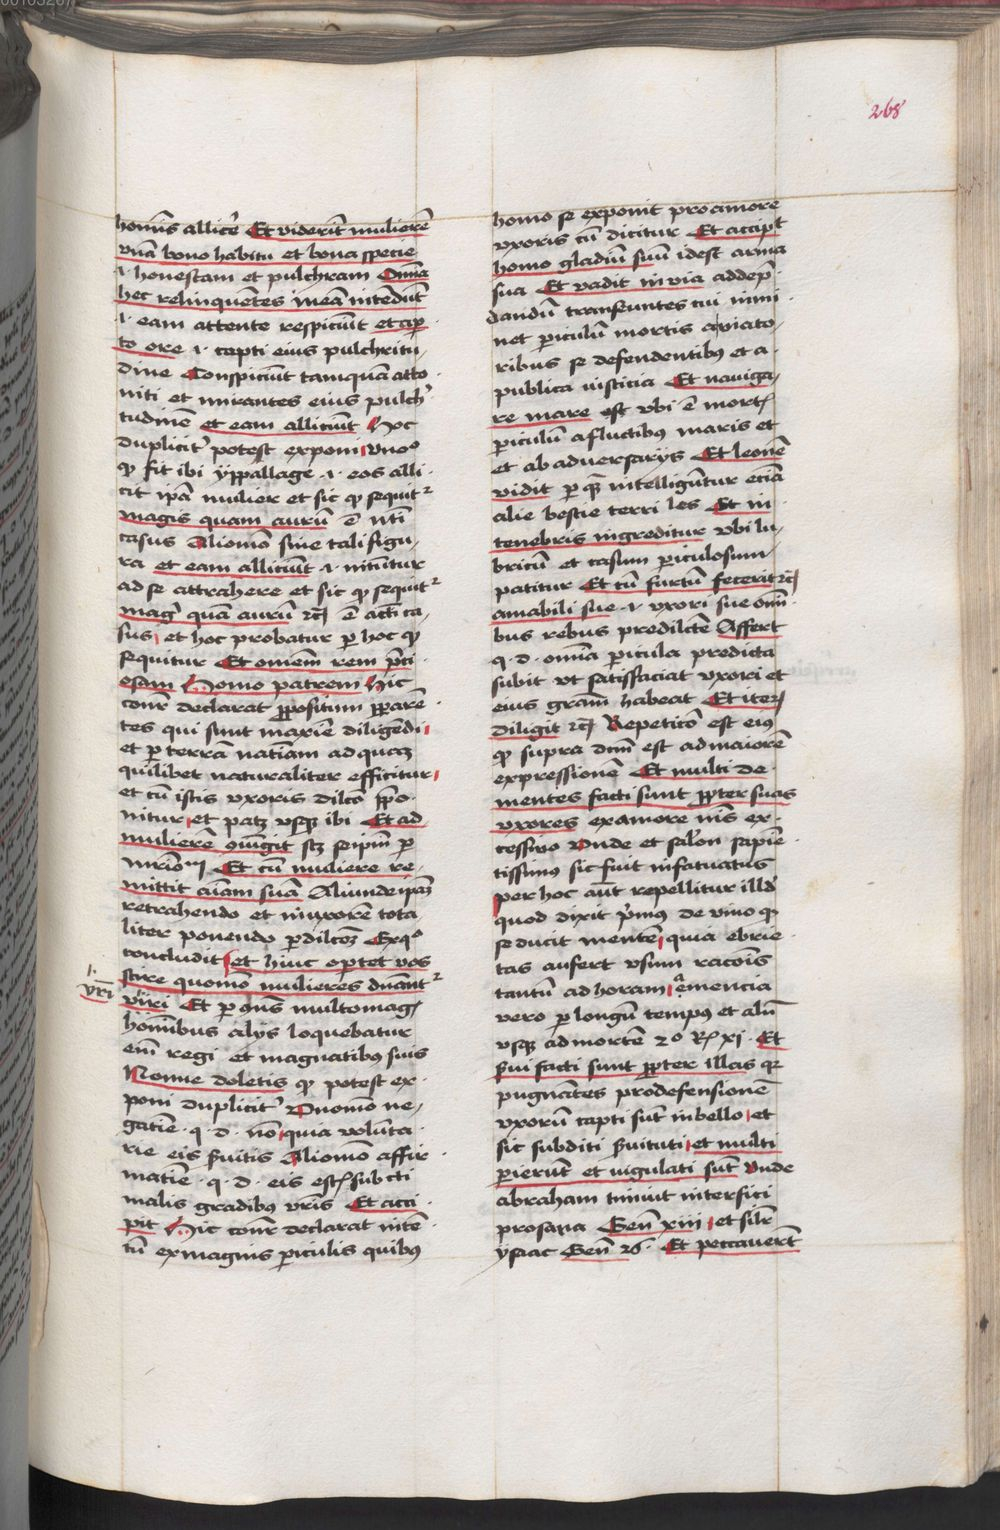 268
hominis allicere Et viderint mulierem
vnam bono habitu et bona specie
.i. honestam et pulchram Omnia
hec relinquentes in eam intendunt
.i. eam attente respiciunt et aper
to ore .i. capti eius pulchritu
dine Conspiciunt tamquam atto
niti et mirantes eius pulchri
tudinem et eam alliciunt Hoc
dupliciter potest exponi vno
quod sit ibi yppallage .i. eos alli
cit ipsa mulier et sic quod sequitur
magis quam aurum est nominatiui
casus Aliomodo sine tali figu
ra et eam alliciunt .i. nituntur
ad se attrahere et sic quod sequitur
magis quam aurum etc est actiui ca
sus et hoc probatur per hoc quod
sequitur Et omnem rem preci
osam Homo patrem Hic
declarat propositum
tes qui sunt maxime diligendi
et per terram natiuam ad quam
quilibet naturaliter efficitur
et cum istis vxoris dileccio
nitur et patet vsque ibi Et ad
mulierem coniungit scilicet seipsum per
Et cum muliere re
mittit animam suam Aliunde ipsam
retrahendo et in vxorem tota
liter ponendo per dileccionem Ex quo
concludit et hinc oportet vos
scire quomodo mulieres dominantur
.i. vestri
viri Et per consequens multomagis
hominibus alijs loquebatur
enim regi et magnatibus suis
Nonne doletis quod potest ex
poni dupliciter Vnomodo ne
gatiue .q.d. non quia volunta
rie eis seruitis Aliomodo affir
matiue .q.d. eis estis subiecti
malis gradibus vestris Et acci
pit Hic declarat
tum ex magnis periculis quibus
homo se exponit pro amore
vxoris cum dicitur Et accipit
homo gladium suum idest arma
sua Et vadit in via ad depre
dandum transeuntes cui immi
net periculum mortis a viato
ribus se defendentibus et a
publica iusticia Et nauiga
re mare est vbi est mortis
periculum a fluctibus maris et
et ab aduersarijs Et leonem
vidit per quem intelliguntur eciam
alie bestie terri les Et in
tenebris ingreditur vbi lu
bricum et casum periculosum
patitur Et cum furtum fecerit etc
amabili sue .i. vxori sue omni
bus rebus predilecte Affert
.q.d. omnia pericula predicta
subit vt satisfaciat vxori et
eius gratiam habeat Et iterum
diligit etc Repeticio est eius
quod supra dictum est ad maiorem
expressionem Et multi de
mentes facti sunt propter suas
vxores ex amore nimis ex
cessiuo Vnde et salomon sapien
tissimus sic fuit infatuatus
per hoc autem repellitur illud
quod dixit primus de vino quod
seducit mentem quia ebrie
tas aufert vsum racionis
tantum ad horam
vero per longum tempus et aliquando
vsque ad mortem 2o Rg xi. Et
serui facti sunt propter illas quia
pugnantes pro defensione
vxorum capti sunt in bello et
sic subditi seruituti et multi
perierunt et iugulati sunt Vnde
abraham timuit interfici
pro sara Gen xiii et similiter
ysaac Gen 26. Et peccauerunt